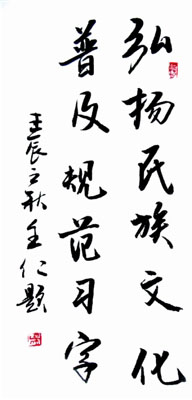 弘扬民族文化
普及规范习字
壬辰之秋全仁题